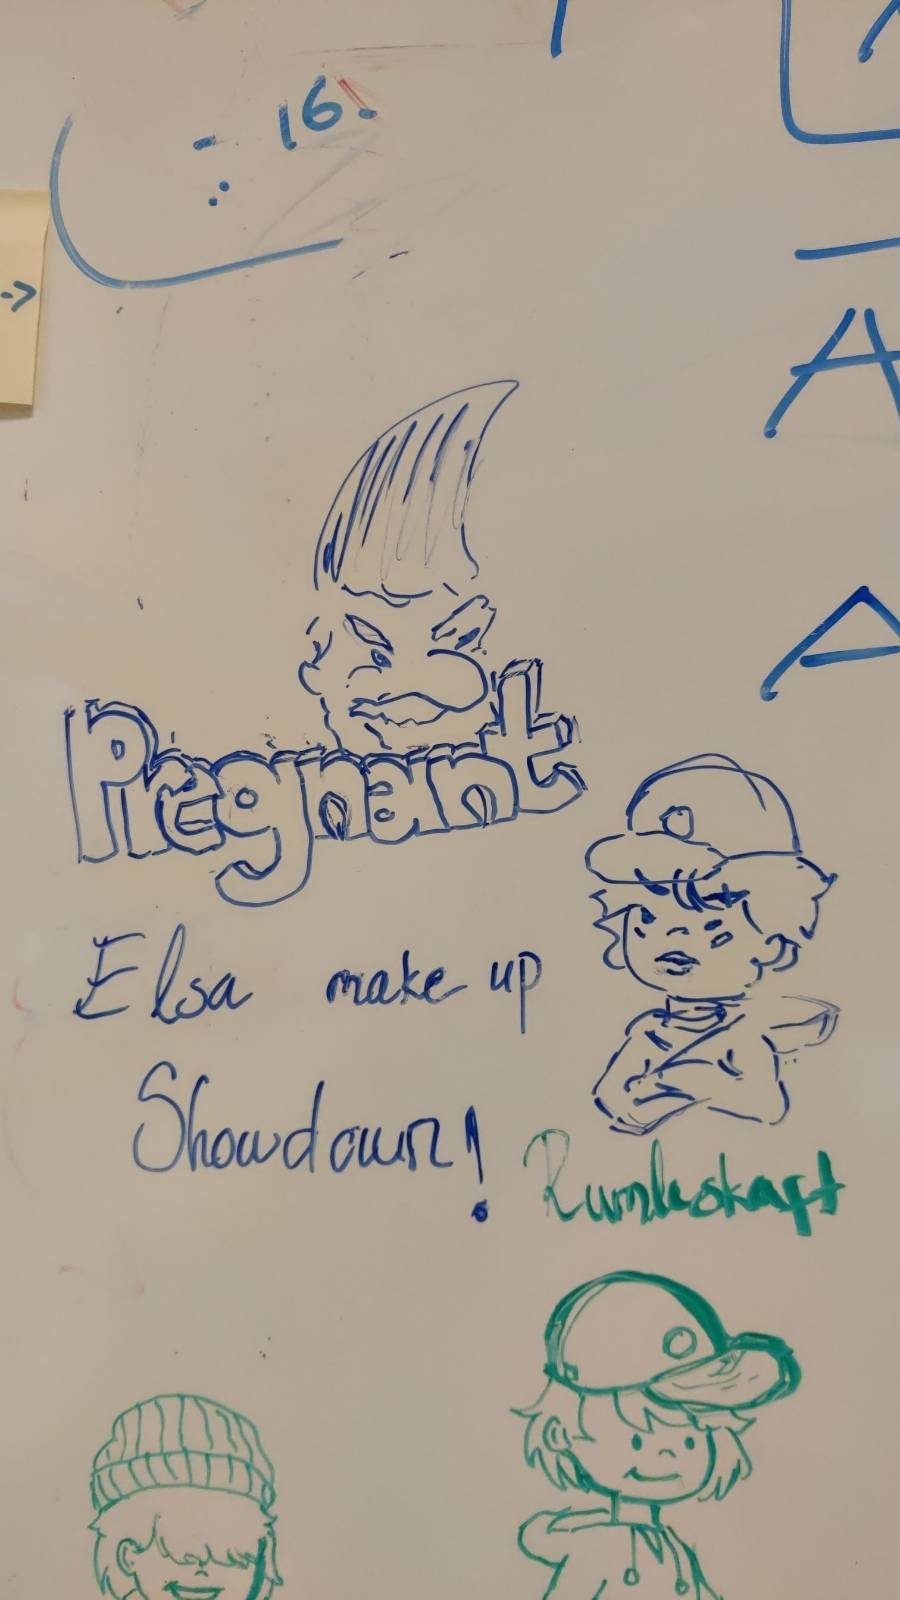 16.
->
A
A
Pregnant
Elsa make up
Showdown!
Rumleskaft